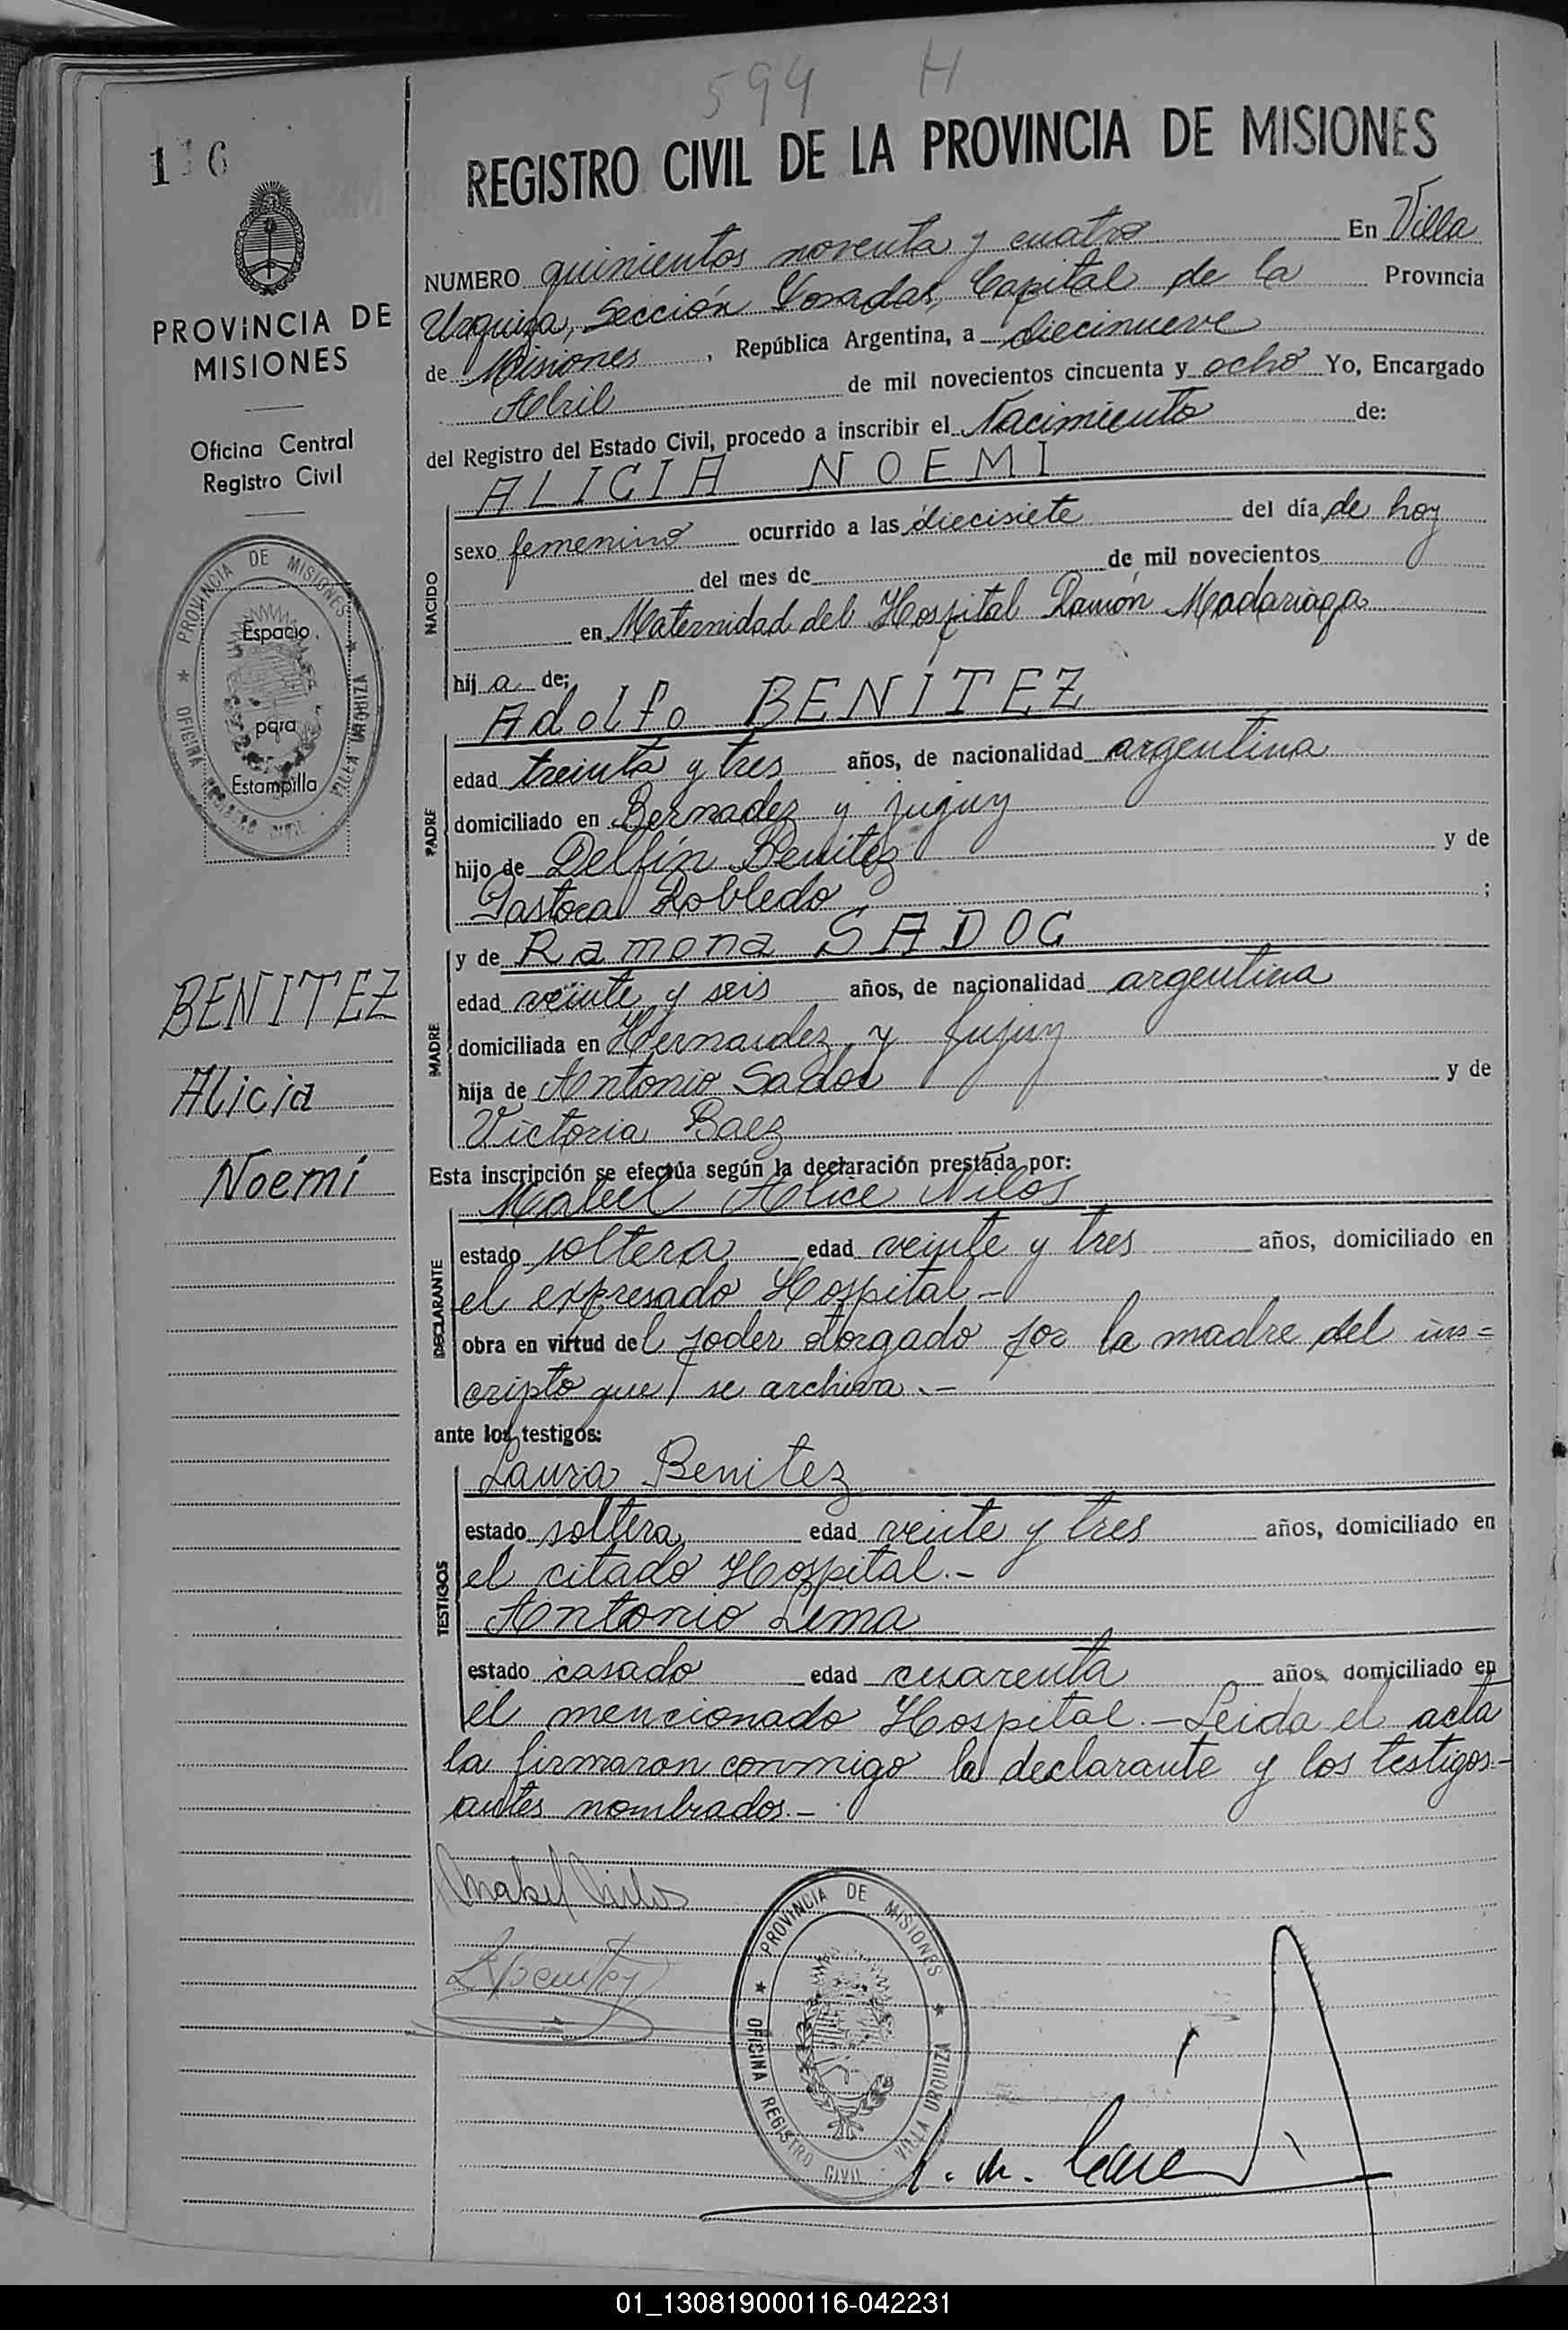 594 H
116
REGISTRO CIVIL DE LA PROVINCIA DE MISIONES
PROVINCIA DE
MISIONES
Oficina Central
Registro Civil
PROVINCIA DE MISIONES
OFICINA REGISTRO CIVIL - VILLA URQUIZA
Espacio
para
Estampilla
BENITEZ
Alicia
Noemi
NUMERO quinientos noventa y cuatro En Villa
Urquiza, Sección Posadas, Capital de la Provincia
de Misiones, República Argentina, a diecinueve
Abril de mil novecientos cincuenta y ocho Yo, Encargado
del Registro del Estado Civil, procedo a inscribir el Nacimiento de:
NACIDO
ALICIA NOEMI
sexo femenino ocurrido a las diecisiete del día de hoy
del mes de de mil novecientos
en Maternidad del Hospital Ramón Madariaga
hij a de;
PADRE
Adolfo BENITEZ
edad treinta y tres años, de nacionalidad argentina
domiciliado en Bernadez y jujuy
hijo de Delfín Benitez y de
Pastora Robledo ;
MADRE
y de Ramona SADOC
edad veinte y seis años, de nacionalidad argentina
domiciliada en Hernandez y Jujuy
hija de Antonio Sadoc y de
Victoria Baez
Esta inscripción se efectúa según la declaración prestada por:
DECLARANTE
Mabel Alice Nilos
estado soltera edad veinte y tres años, domiciliado en
el expresado Hospital.-
obra en virtud del poder otorgado por la madre del ins=
cripto que se archiva.-
ante los testigos:
TESTIGOS
Laura Benitez
estado soltera edad veinte y tres años, domiciliado en
el citado Hospital.-
Antonio Lema
estado casado edad cuarenta años, domiciliado en
el mencionado Hospital.- Leida el acta
la firmaron conmigo la declarante y los testigos-
antes nombrados.-
Mabel Nilos
L Benitez
PROVINCIA DE MISIONES
OFICINA REGISTRO CIVIL - VILLA URQUIZA
01_130819000116-042231